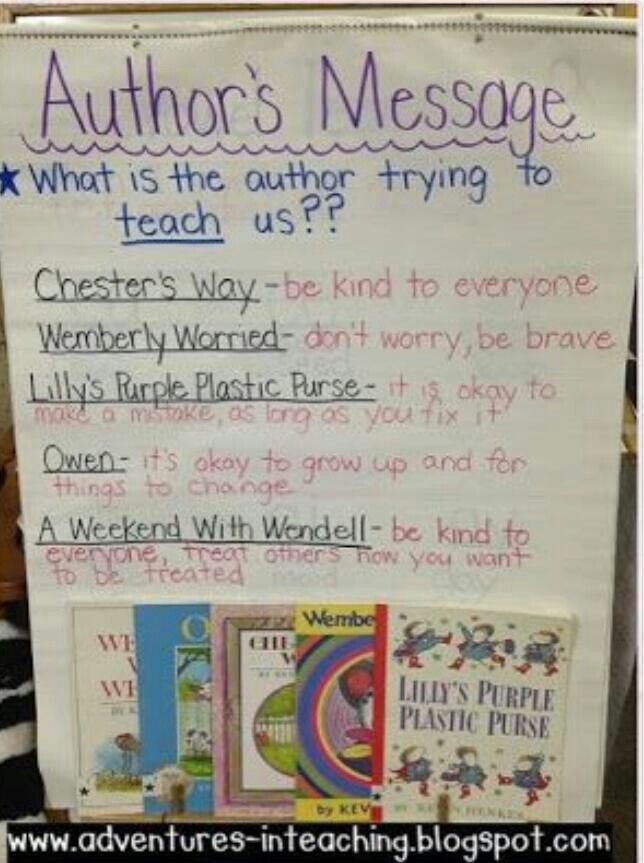 Author's Message
★ What is the author trying to
teach us??
Chester's Way - be kind to everyone
Wemberly Worried - don't worry, be brave
Lilly's Purple Plastic Purse - it is okay to
make a mistake, as long as you fix it
Owen - it's okay to grow up and for
things to change
A Weekend With Wendell - be kind to
everyone, treat others how you want
to be treated
WE
W
WE
O
CHE
W
Wembe
by KEV
LILLY'S PURPLE
PLASTIC PURSE
BY KEVIN HENKES
www.adventures-inteaching.blogspot.com